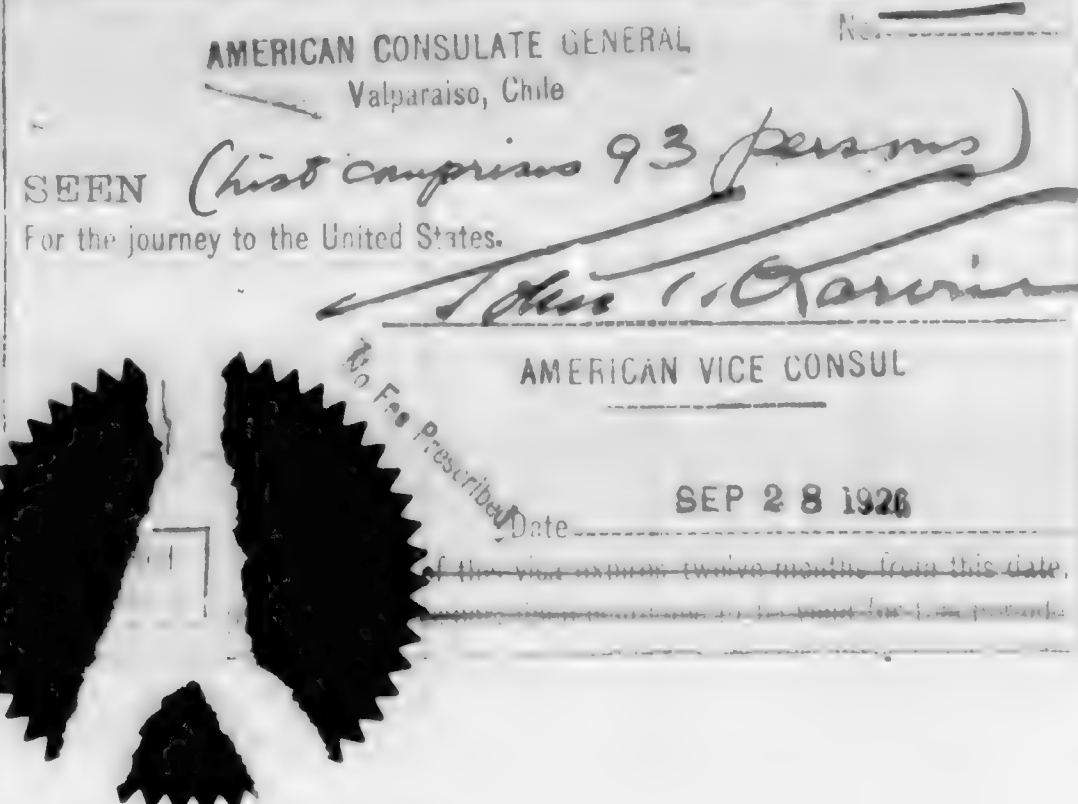 No.
AMERICAN CONSULATE GENERAL
Valparaiso, Chile
SEEN (List comprises 93 persons)
For the journey to the United States.
John
AMERICAN VICE CONSUL
No Fee Prescribed
Date SEP 28 1926
twelve months from this date,